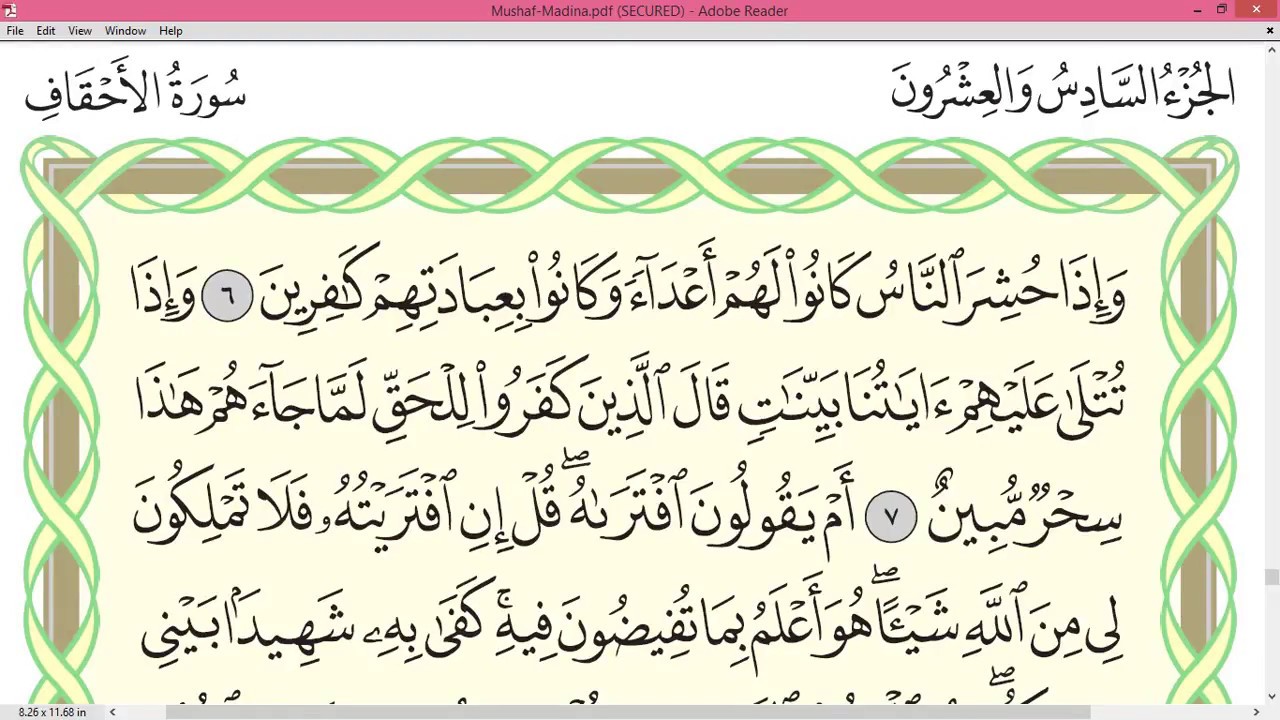 Mushaf-Madina.pdf (SECURED) - Adobe Reader
File Edit View Window Help
الجُزْءُ السَّادِسُ وَالعِشْرُونَ
سُورَةُ الأَحْقَافِ
وَإِذَا حُشِرَ ٱلنَّاسُ كَانُوا۟ لَهُمْ أَعْدَآءً وَكَانُوا۟ بِعِبَادَتِهِمْ كَٰفِرِينَ ٦ وَإِذَا
تُتْلَىٰ عَلَيْهِمْ ءَايَٰتُنَا بَيِّنَٰتٍ قَالَ ٱلَّذِينَ كَفَرُوا۟ لِلْحَقِّ لَمَّا جَآءَهُمْ هَٰذَا
سِحْرٌ مُّبِينٌ ٧ أَمْ يَقُولُونَ ٱفْتَرَىٰهُ ۖ قُلْ إِنِ ٱفْتَرَيْتُهُۥ فَلَا تَمْلِكُونَ
لِى مِنَ ٱللَّهِ شَيْـًٔا ۖ هُوَ أَعْلَمُ بِمَا تُفِيضُونَ فِيهِ ۚ كَفَىٰ بِهِۦ شَهِيدًۢا بَيْنِى
8.26 x 11.68 in